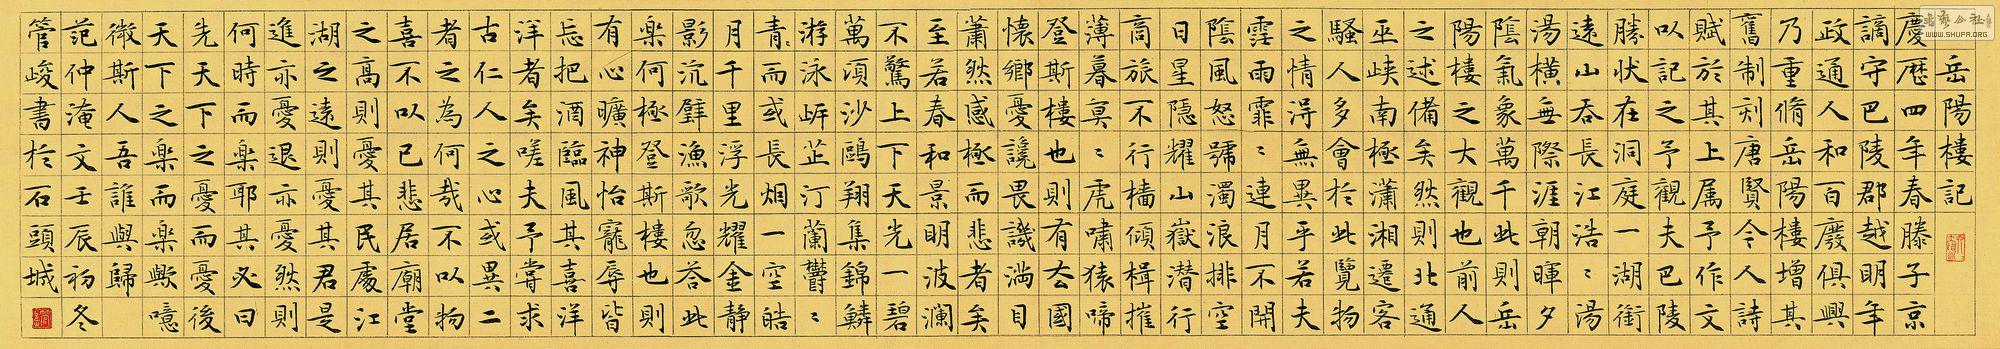 岳陽樓記
慶歷四年春滕子京
謫守巴陵郡越明年
政通人和百廢俱興
乃重脩岳陽樓增其
舊制刻唐賢今人詩
賦於其上属予作文
以記之予觀夫巴陵
勝状在洞庭一湖銜
遠山吞長江浩〻湯
湯橫無際涯朝暉夕
陰氣象萬千此則岳
陽樓之大觀也前人
之述備矣然則北通
巫峽南極瀟湘遷客
騷人多會於此覽物
之情得無異乎若夫
霪雨霏〻連月不開
陰風怒號濁浪排空
日星隱耀山嶽潜行
商旅不行檣傾楫摧
薄暮冥〻虎嘯猿啼
登斯樓也則有去國
懷鄉憂讒畏譏滿目
蕭然感極而悲者矣
至若春和景明波瀾
不驚上下天光一碧
萬頃沙鷗翔集錦鱗
游泳岸芷汀蘭鬱〻
青〻而或長烟一空皓
月千里浮光耀金静
影沉璧漁歌忽答此
樂何極登斯樓也則
有心曠神怡寵辱皆
忘把酒臨風其喜洋
洋者矣嗟夫予嘗求
古仁人之心或異二
者之為何哉不以物
喜不以己悲居廟堂
之高則憂其民處江
湖之遠則憂其君是
進亦憂退亦憂然則
何時而樂耶其必曰
先天下之憂而憂後
天下之樂而樂歟噫
微斯人吾誰與歸
范仲淹文壬辰初冬
管峻書於石頭城
WWW.SHUFA.ORG